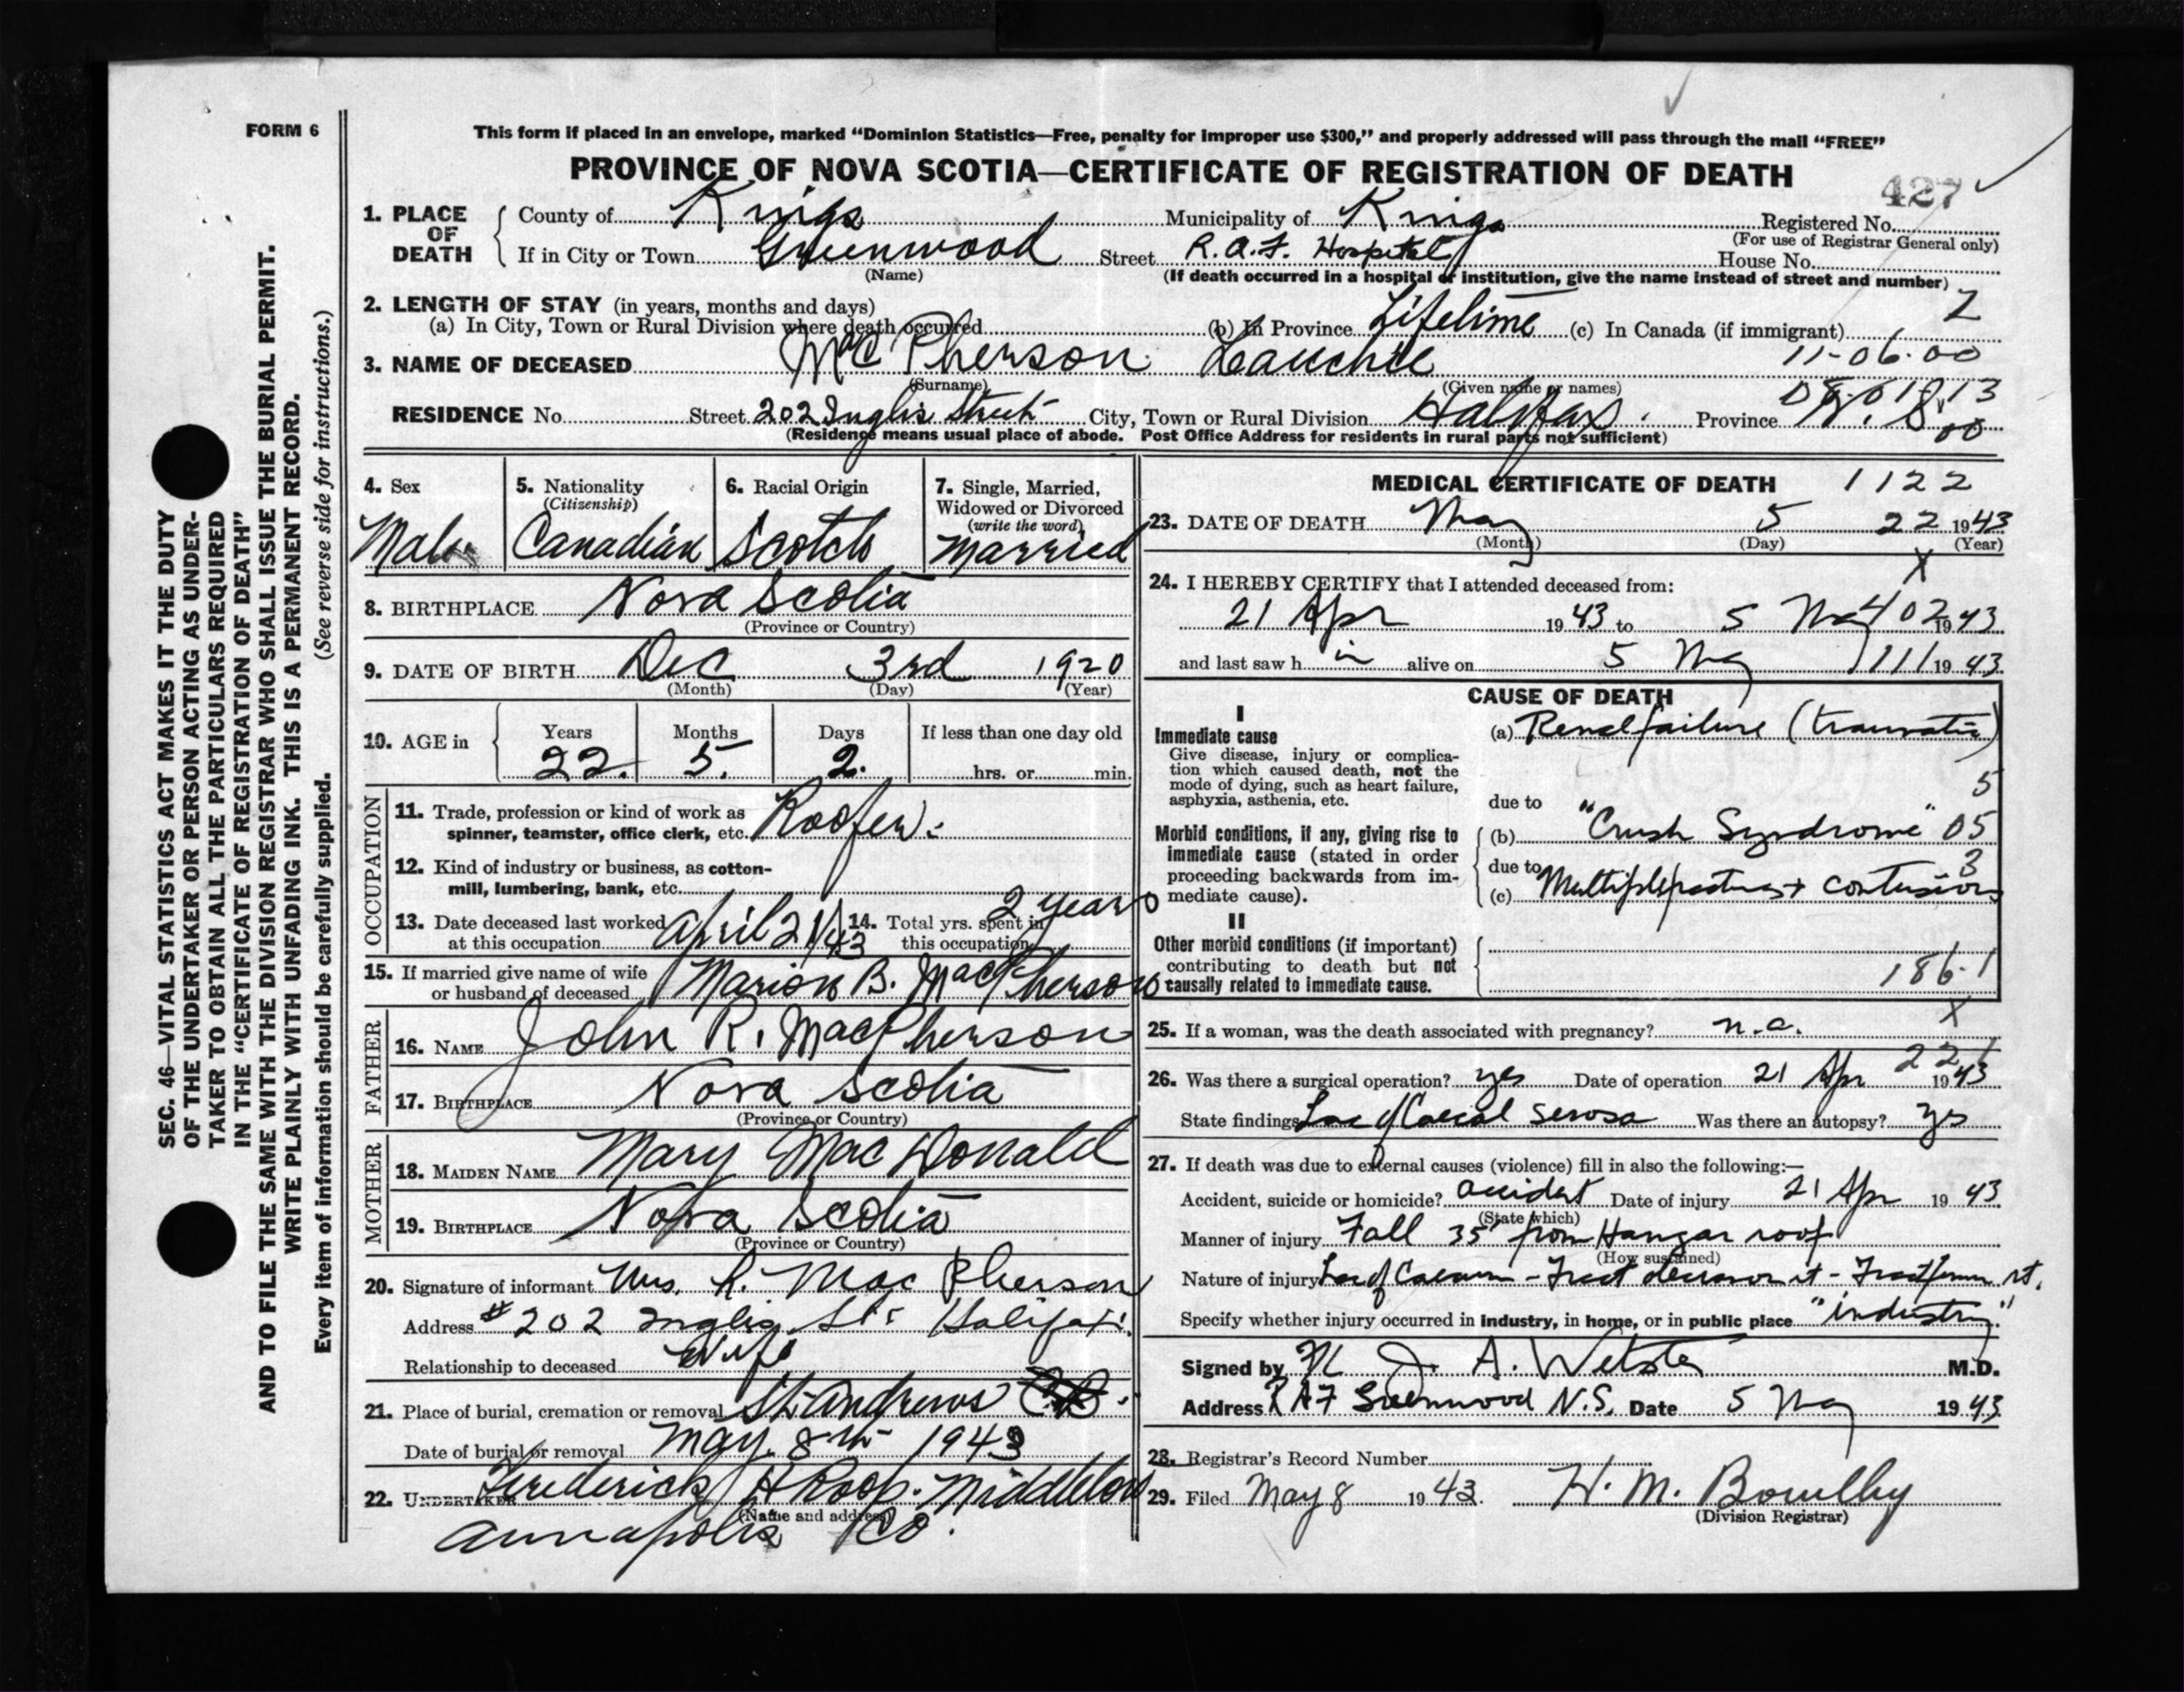 FORM 6
This form if placed in an envelope, marked "Dominion Statistics—Free, penalty for improper use $300," and properly addressed will pass through the mail "FREE"
PROVINCE OF NOVA SCOTIA—CERTIFICATE OF REGISTRATION OF DEATH
427
1. PLACE OF DEATH County of Kings Municipality of Kings Registered No.
(For use of Registrar General only)
If in City or Town Greenwood Street R.A.F. Hospital House No.
(Name) (If death occurred in a hospital or institution, give the name instead of street and number)
2. LENGTH OF STAY (in years, months and days) 2
(a) In City, Town or Rural Division where death occurred (b) In Province Lifetime (c) In Canada (if immigrant)
3. NAME OF DECEASED MacPherson Lauchie 11-06-00
(Surname) (Given name or names)
RESIDENCE No. Street 202 Inglis Street City, Town or Rural Division Halifax Province N.S. 00
(Residence means usual place of abode. Post Office Address for residents in rural parts not sufficient)
4. Sex 5. Nationality (Citizenship) 6. Racial Origin 7. Single, Married, Widowed or Divorced (write the word)
Male Canadian Scotch Married
8. BIRTHPLACE Nova Scotia
(Province or Country)
9. DATE OF BIRTH Dec 3rd 1920
(Month) (Day) (Year)
10. AGE in Years Months Days If less than one day old
22. 5. 2. hrs. or min.
OCCUPATION
11. Trade, profession or kind of work as
spinner, teamster, office clerk, etc. Roofer.
12. Kind of industry or business, as cotton-
mill, lumbering, bank, etc.
13. Date deceased last worked at this occupation April 21/43 14. Total yrs. spent in this occupation 2 years
15. If married give name of wife
or husband of deceased Marion B. MacPherson
FATHER
16. NAME John R. MacPherson
17. BIRTHPLACE Nova Scotia
(Province or Country)
MOTHER
18. MAIDEN NAME Mary MacDonald
19. BIRTHPLACE Nova Scotia
(Province or Country)
20. Signature of informant Mrs. L. MacPherson
Address #202 Inglis St. Halifax.
Relationship to deceased Wife
21. Place of burial, cremation or removal St. Andrews
Date of burial or removal May 8th 1943
22. UNDERTAKER Frederick H Roop. Middleton
(Name and address)
Annapolis Co.
MEDICAL CERTIFICATE OF DEATH 1122
23. DATE OF DEATH May 5 22 1943
(Month) (Day) (Year)
X
24. I HEREBY CERTIFY that I attended deceased from:
21 Apr 1943 to 5 May 402 1943
and last saw h im alive on 5 May 111 1943
CAUSE OF DEATH
I
Immediate cause (a) Renal failure (traumatic)
Give disease, injury or complica-
tion which caused death, not the
mode of dying, such as heart failure,
asphyxia, asthenia, etc.
5
due to
Morbid conditions, if any, giving rise to (b) "Crush Syndrome" 05
immediate cause (stated in order
proceeding backwards from im-
mediate cause).
due to 3
(c) Multiple fractures + contusions
II
Other morbid conditions (if important)
contributing to death but not
causally related to immediate cause. 186.1
X
25. If a woman, was the death associated with pregnancy? n.a.
26. Was there a surgical operation? yes Date of operation 21 Apr 1943
State findings Lac of Caecal serosa Was there an autopsy? yes
27. If death was due to external causes (violence) fill in also the following:—
Accident, suicide or homicide? accident Date of injury 21 Apr 1943
(State which)
Manner of injury Fall 35' from Hangar roof
(How sustained)
Nature of injury Lac of Caecum - Fract rt - Fract femur rt.
Specify whether injury occurred in industry, in home, or in public place "industry."
Signed by J. A. Webster M.D.
Address RAF Greenwood N.S. Date 5 May 1943
28. Registrar's Record Number
29. Filed May 8 1943. H. M. Bowlby
(Division Registrar)
SEC. 46—VITAL STATISTICS ACT MAKES IT THE DUTY
OF THE UNDERTAKER OR PERSON ACTING AS UNDER-
TAKER TO OBTAIN ALL THE PARTICULARS REQUIRED
IN THE "CERTIFICATE OF REGISTRATION OF DEATH"
AND TO FILE THE SAME WITH THE DIVISION REGISTRAR WHO SHALL ISSUE THE BURIAL PERMIT.
WRITE PLAINLY WITH UNFADING INK. THIS IS A PERMANENT RECORD.
Every item of information should be carefully supplied. (See reverse side for instructions.)